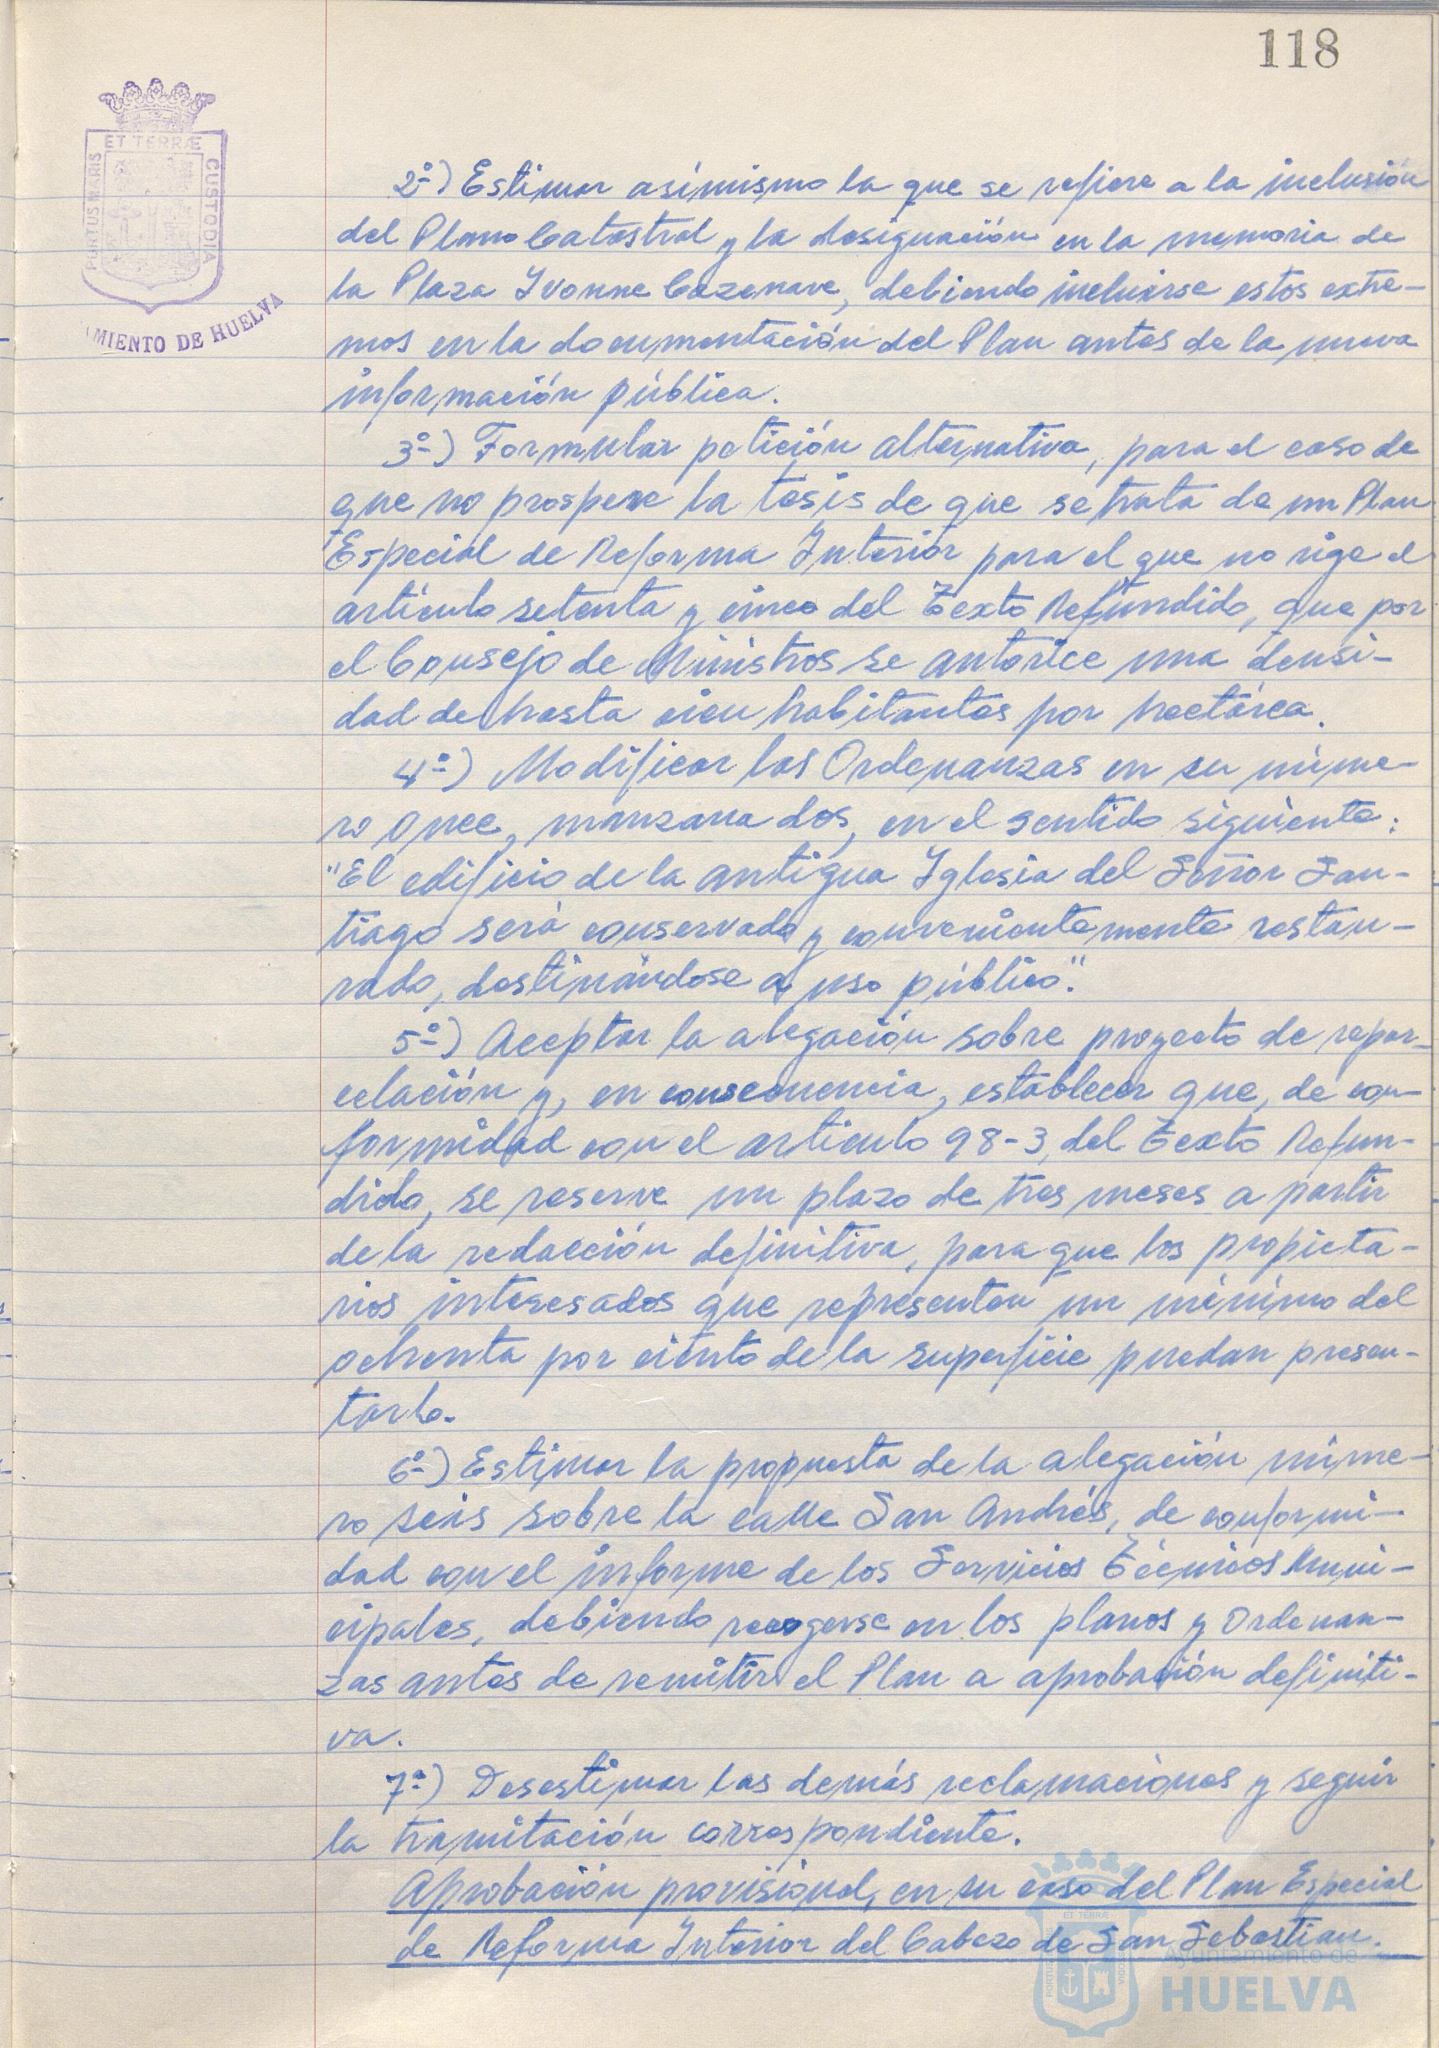 118
ET TERRÆ
PORTUS MARIS
CUSTODIA
AMIENTO DE HUELVA
2º-) Estimar asímismo la que se refiere a la inclusión
del Plano Catastral y la designación en la memoria de
la Plaza Ivonne Cazenave, debiendo incluirse estos extre-
mos en la documentación del Plan antes de la nueva
información pública.
3º-) Formular petición alternativa, para el caso de
que no prospere la tesis de que se trata de un Plan
Especial de Reforma Interior para el que no rige el
artículo setenta y cinco del Texto Refundido, que por
el Consejo de Ministros se autorice una densi-
dad de hasta cien habitantes por hectárea.
4º-) Modificar las Ordenanzas en su núme-
ro once, manzana dos, en el sentido siguiente:
"El edificio de la antigua Iglesia del Señor San-
tiago será conservado y convenientemente restau-
rado, destinándose a uso público".
5º-) Aceptar la alegación sobre proyecto de repar-
celación y, en consecuencia, establecer que, de con-
formidad con el artículo 98-3, del Texto Refun-
dido, se reserve un plazo de tres meses a partir
de la redacción definitiva, para que los propieta-
rios interesados que representen un mínimo del
ochenta por ciento de la superficie puedan presen-
tarlo.
6º-) Estimar la propuesta de la alegación núme-
ro seis sobre la calle San Andrés, de conformi-
dad con el informe de los Servicios Técnicos Muni-
cipales, debiendo recogerse en los planos y Ordenan-
zas antes de remitir el Plan a aprobación definiti-
va.
7º-) Desestimar las demás reclamaciones y seguir
la tramitación correspondiente.
Aprobación provisional, en su caso del Plan Especial
de Reforma Interior del Cabezo de San Sebastian.
Ayuntamiento de
HUELVA